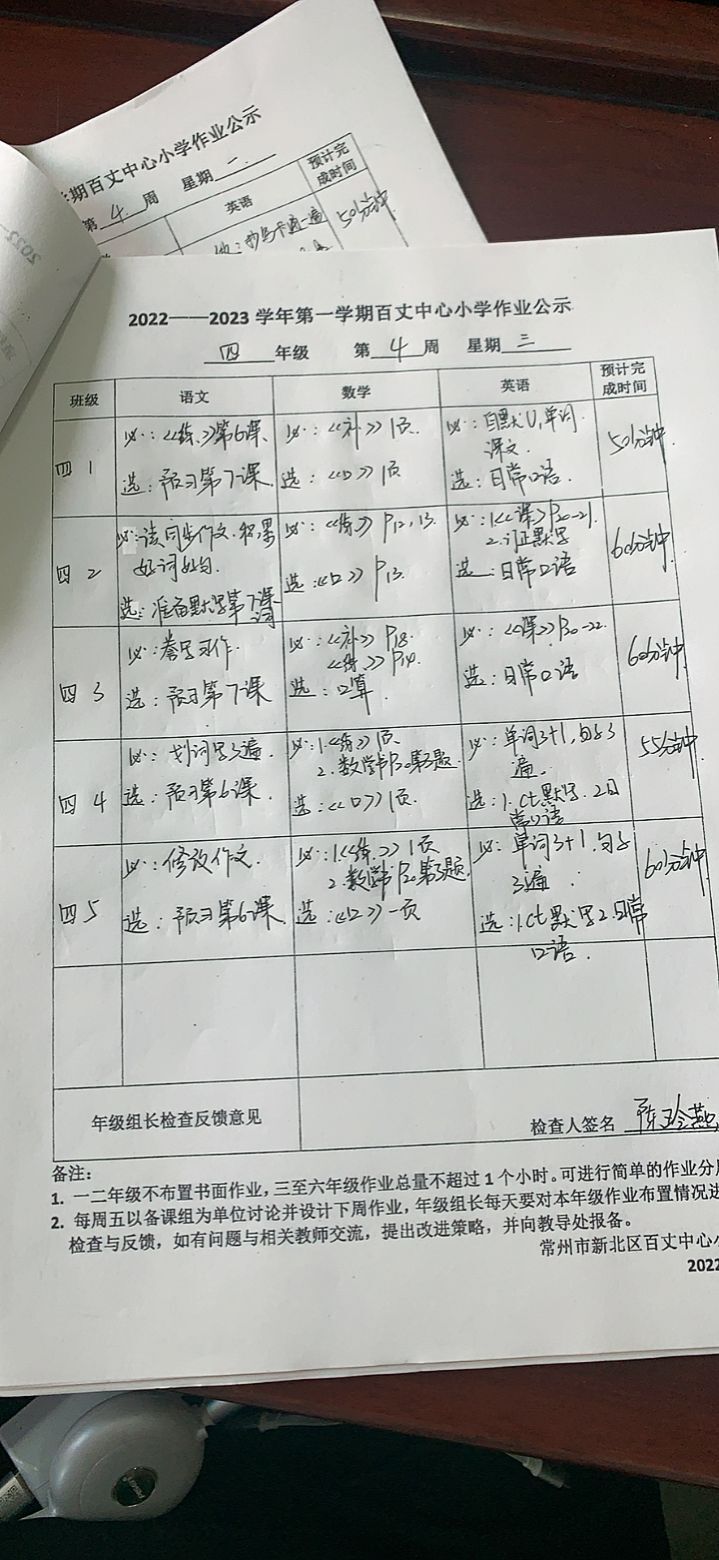 学期百丈中心小学作业公示
第 4 周 星期 二
英语 预计完成时间
50分钟
2022——2023 学年第一学期百丈中心小学作业公示
四 年级 第 4 周 星期 三
班级 语文 数学 英语 预计完成时间
四 1
必：《练》第6课
选：预习第7课
必：《补》1页
选：《口》1页
必：自默U1单词
课文
选：日常口语
50分钟
四 2
必：读同步作文，积累
好词好句.
选：准备默写第7课
词
必：《练》P12, 13.
选：《口》P13.
必：1《课》P20-21
2.订正默写
选：日常口语
60分钟
四 3
必：誊写习作
选：预习第7课
必：《补》P18.
《练》P14.
选：口算
必：《课》P20-22
选：日常口语
60分钟
四 4
必：划词写3遍.
选：预习第6课.
必：1.《练》1页
2.数学书P20第3题
选：《口》1页.
必：单词3+1, 句子3
遍.
选：1.Ct默写. 2日
常口语
55分钟
四 5
必：修改作文.
选：预习第6课
必：1.《练》1页
2.数学书P20第3题.
选：《口》一页
必：单词3+1. 句子
3遍
选：1.Ct默写2.日常
口语.
60分钟
年级组长检查反馈意见 检查人签名
备注：
1. 一二年级不布置书面作业，三至六年级作业总量不超过 1 个小时。可进行简单的作业分
2. 每周五以备课组为单位讨论并设计下周作业，年级组长每天要对本年级作业布置情况进
检查与反馈，如有问题与相关教师交流，提出改进策略，并向教导处报备。
常州市新北区百丈中心
2022